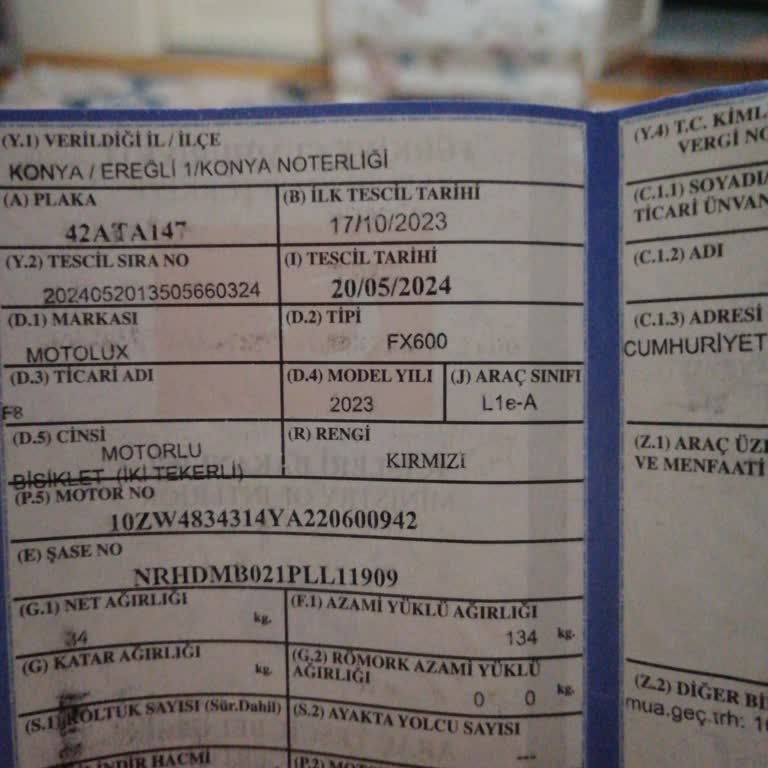 (Y.1) VERİLDİĞİ İL / İLÇE
KONYA / EREĞLİ 1/KONYA NOTERLİĞİ
(A) PLAKA
42ATA147
(B) İLK TESCİL TARİHİ
17/10/2023
(Y.2) TESCİL SIRA NO
2024052013505660324
(I) TESCİL TARİHİ
20/05/2024
(D.1) MARKASI
MOTOLUX
(D.2) TİPİ
FX600
(D.3) TİCARİ ADI
F8
(D.4) MODEL YILI
2023
(J) ARAÇ SINIFI
L1e-A
(D.5) CİNSİ
MOTORLU
BİSİKLET (İKİ TEKERLİ)
(R) RENGİ
KIRMIZI
(P.5) MOTOR NO
10ZW4834314YA220600942
(E) ŞASE NO
NRHDMB021PLL11909
(G.1) NET AĞIRLIĞI
34 kg.
(F.1) AZAMİ YÜKLÜ AĞIRLIĞI
134 kg.
(G) KATAR AĞIRLIĞI
kg.
(G.2) RÖMORK AZAMİ YÜKLÜ
AĞIRLIĞI
0 0 kg.
(S.1) KOLTUK SAYISI (Sür.Dahil)
(S.2) AYAKTA YOLCU SAYISI
---
HACMİ
(P.2)
(Y.4) T.C. KİML
VERGİ NO
(C.1.1) SOYADI/
TİCARİ ÜNVAN
(C.1.2) ADI
(C.1.3) ADRESİ
CUMHURİYET
(Z.1) ARAÇ ÜZE
VE MENFAATİ
(Z.2) DİĞER Bİ
mua.geç.trh: 1